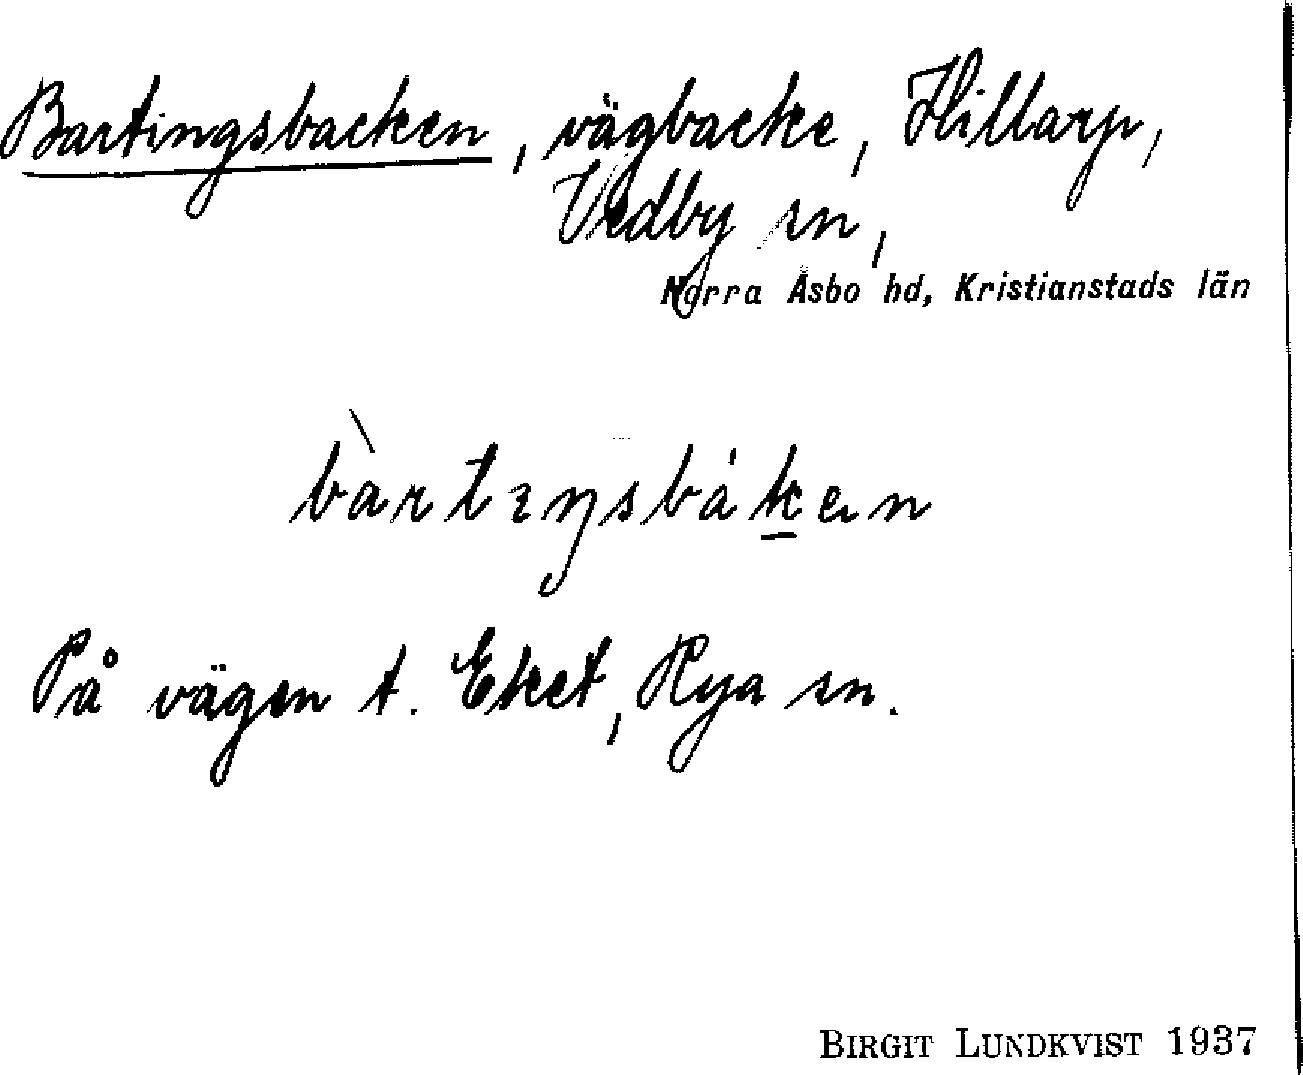 Bartingsbacken, vägbacke, Hillarp,
Vedby sn,
Norra Åsbo hd, Kristianstads län
bàrtıŋsbáken
På vägen t. Eket, Rya sn.
BIRGIT LUNDKVIST 1937